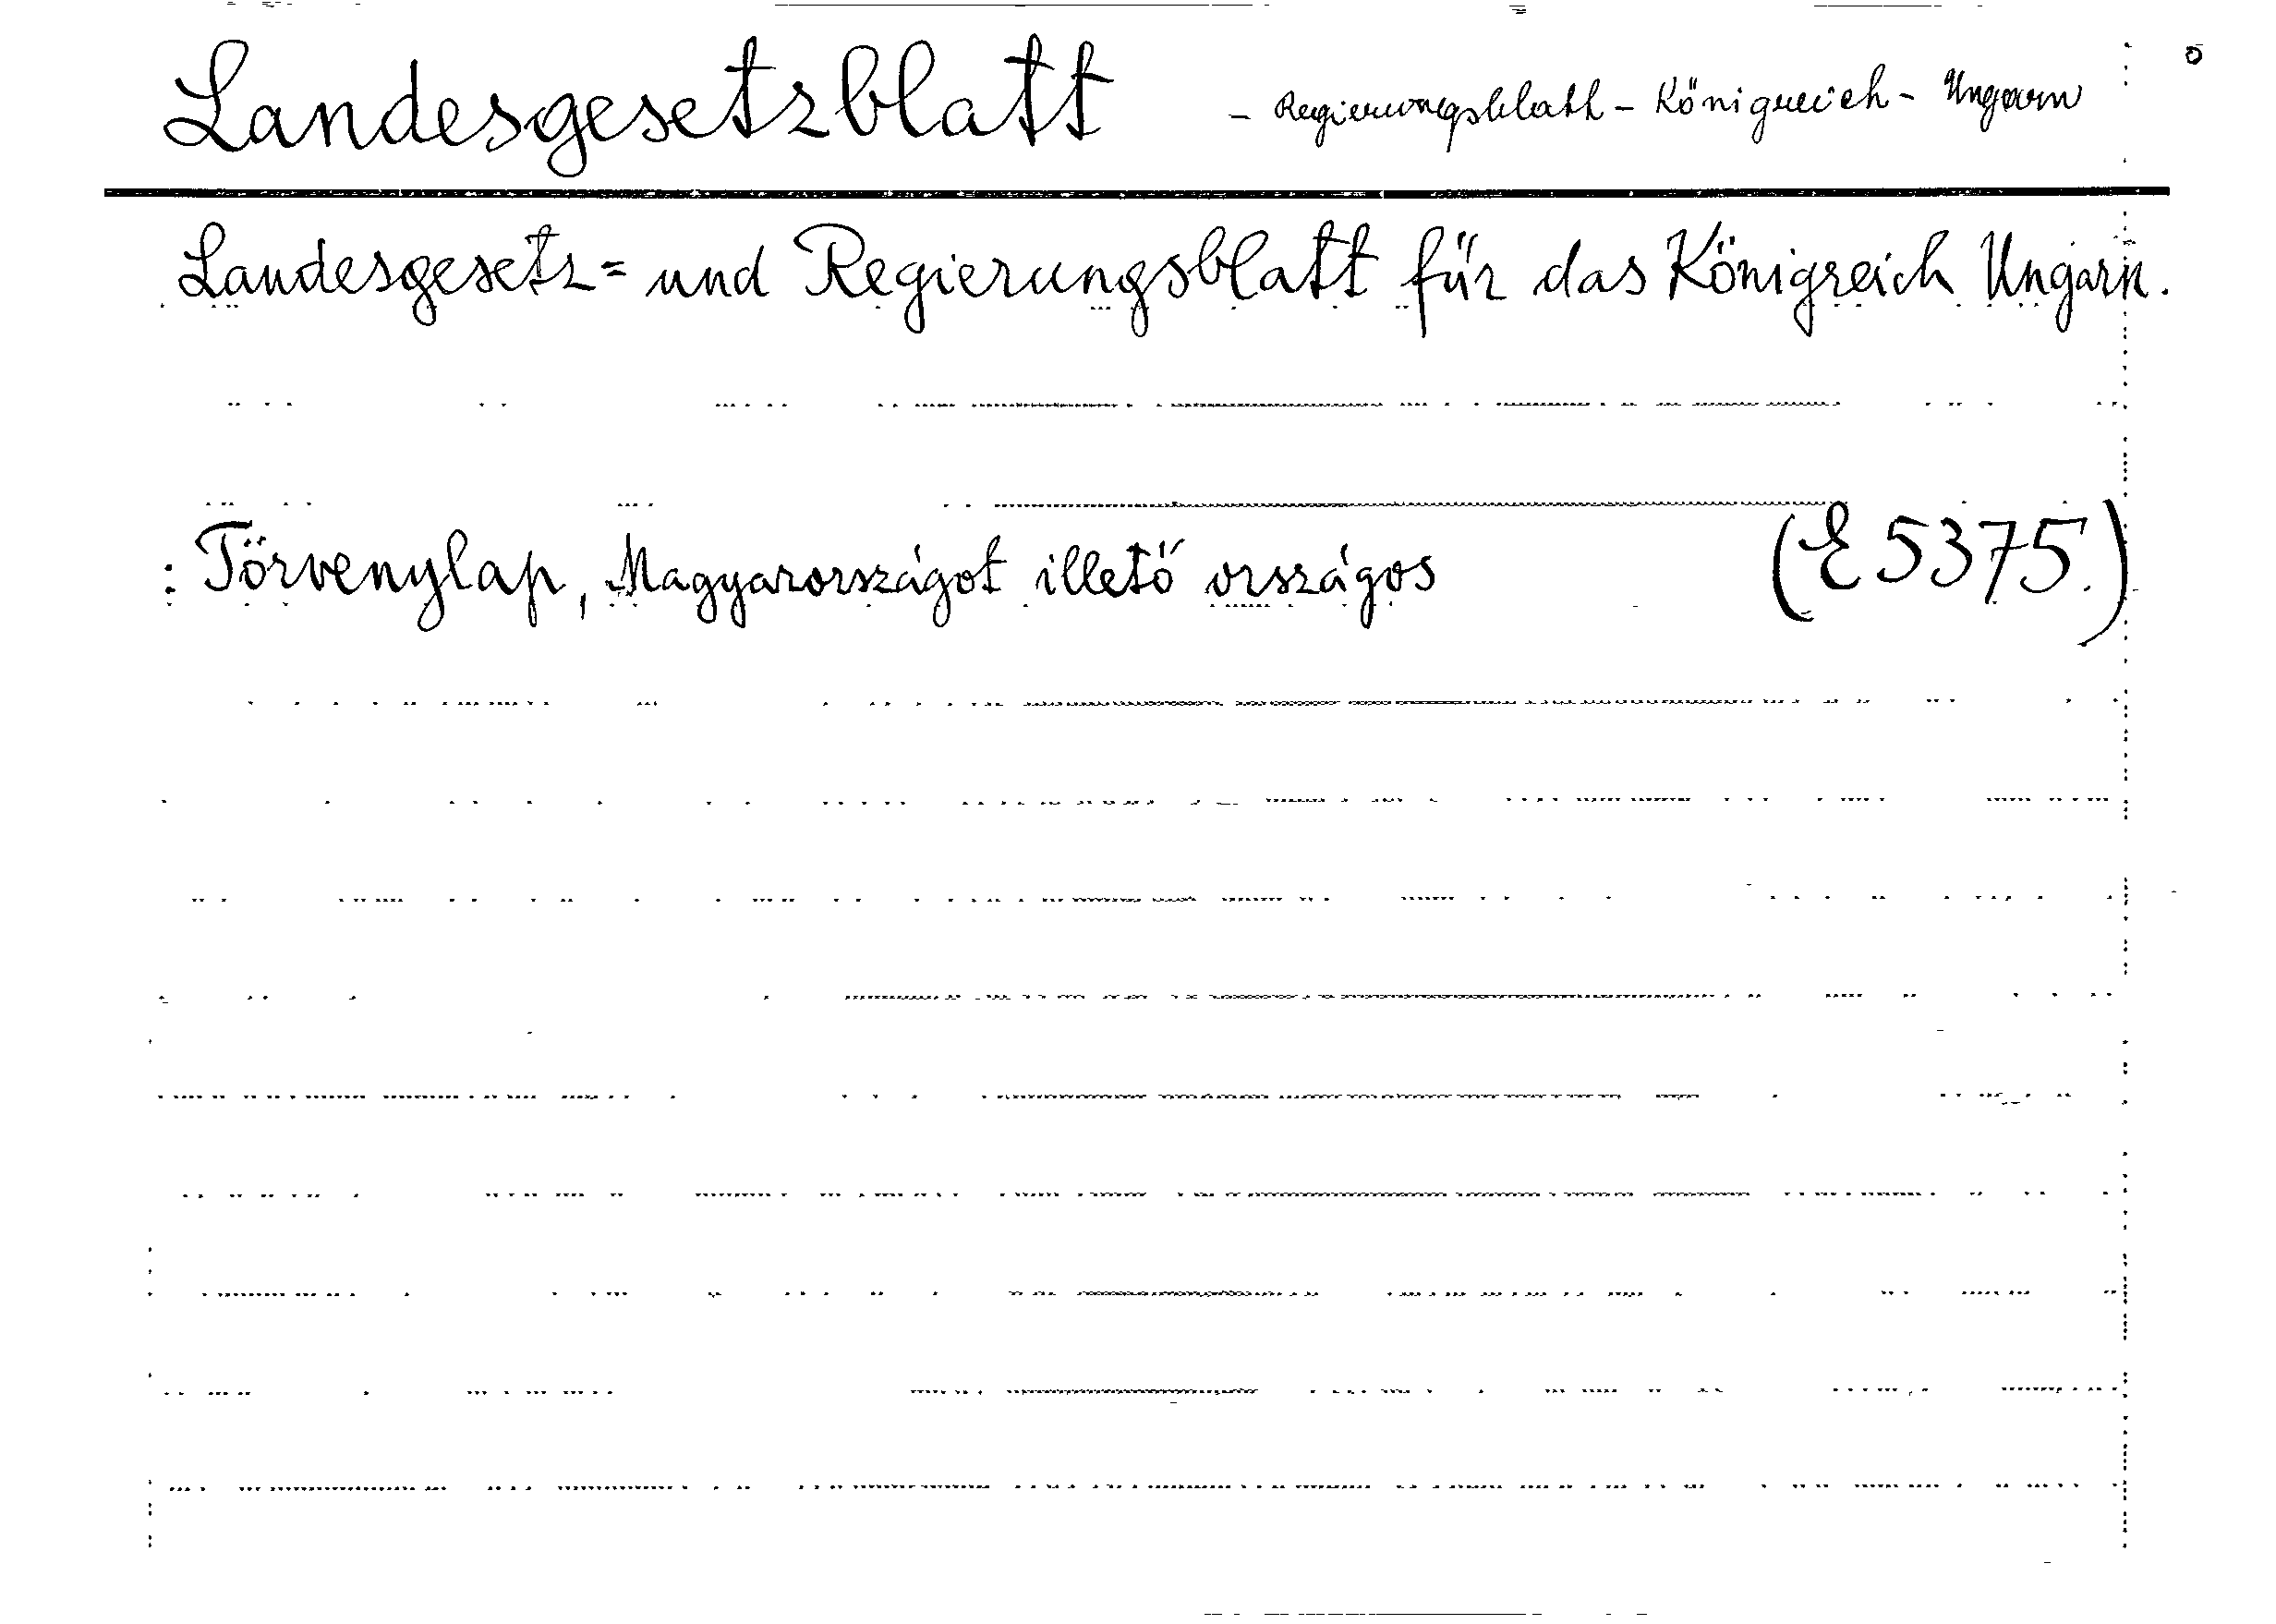 Landesgesetzblatt - Regierungsblatt - Königreich - Ungarn
Landesgesetz= und Regierungsblatt für das Königreich Ungarn.
: Törvenylap, Magyarországot illető országos (E 5375.)